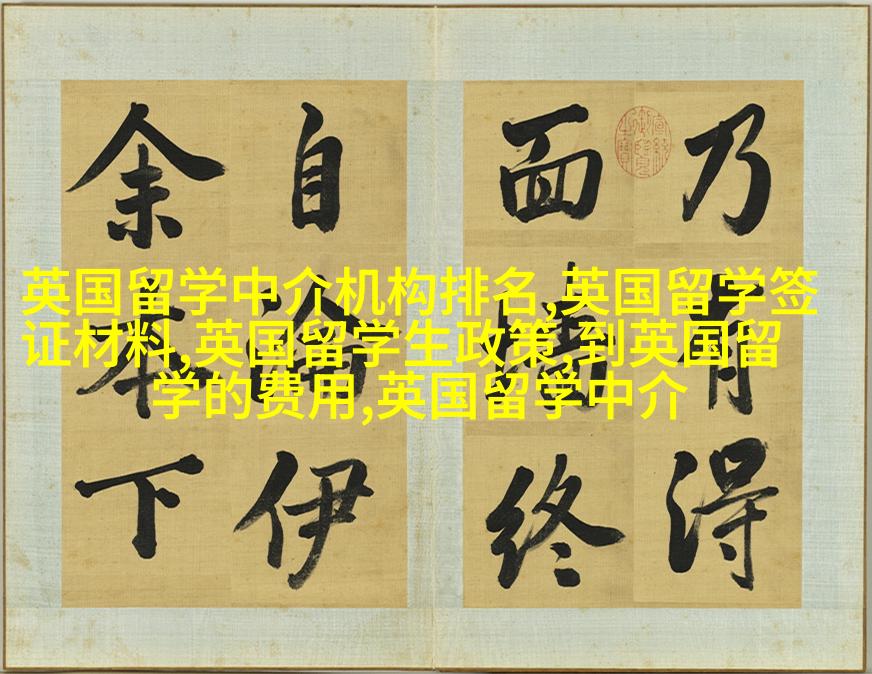 英国留学中介机构排名,英国留学签
证材料,英国留学生政策,到英国留
学的费用,英国留学中介
乃有得
面墻終
自伊
余本下